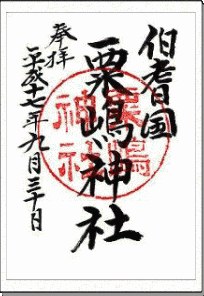 伯耆国
粟嶋神社
奉拝
平成十七年九月三十日
粟嶋
神社